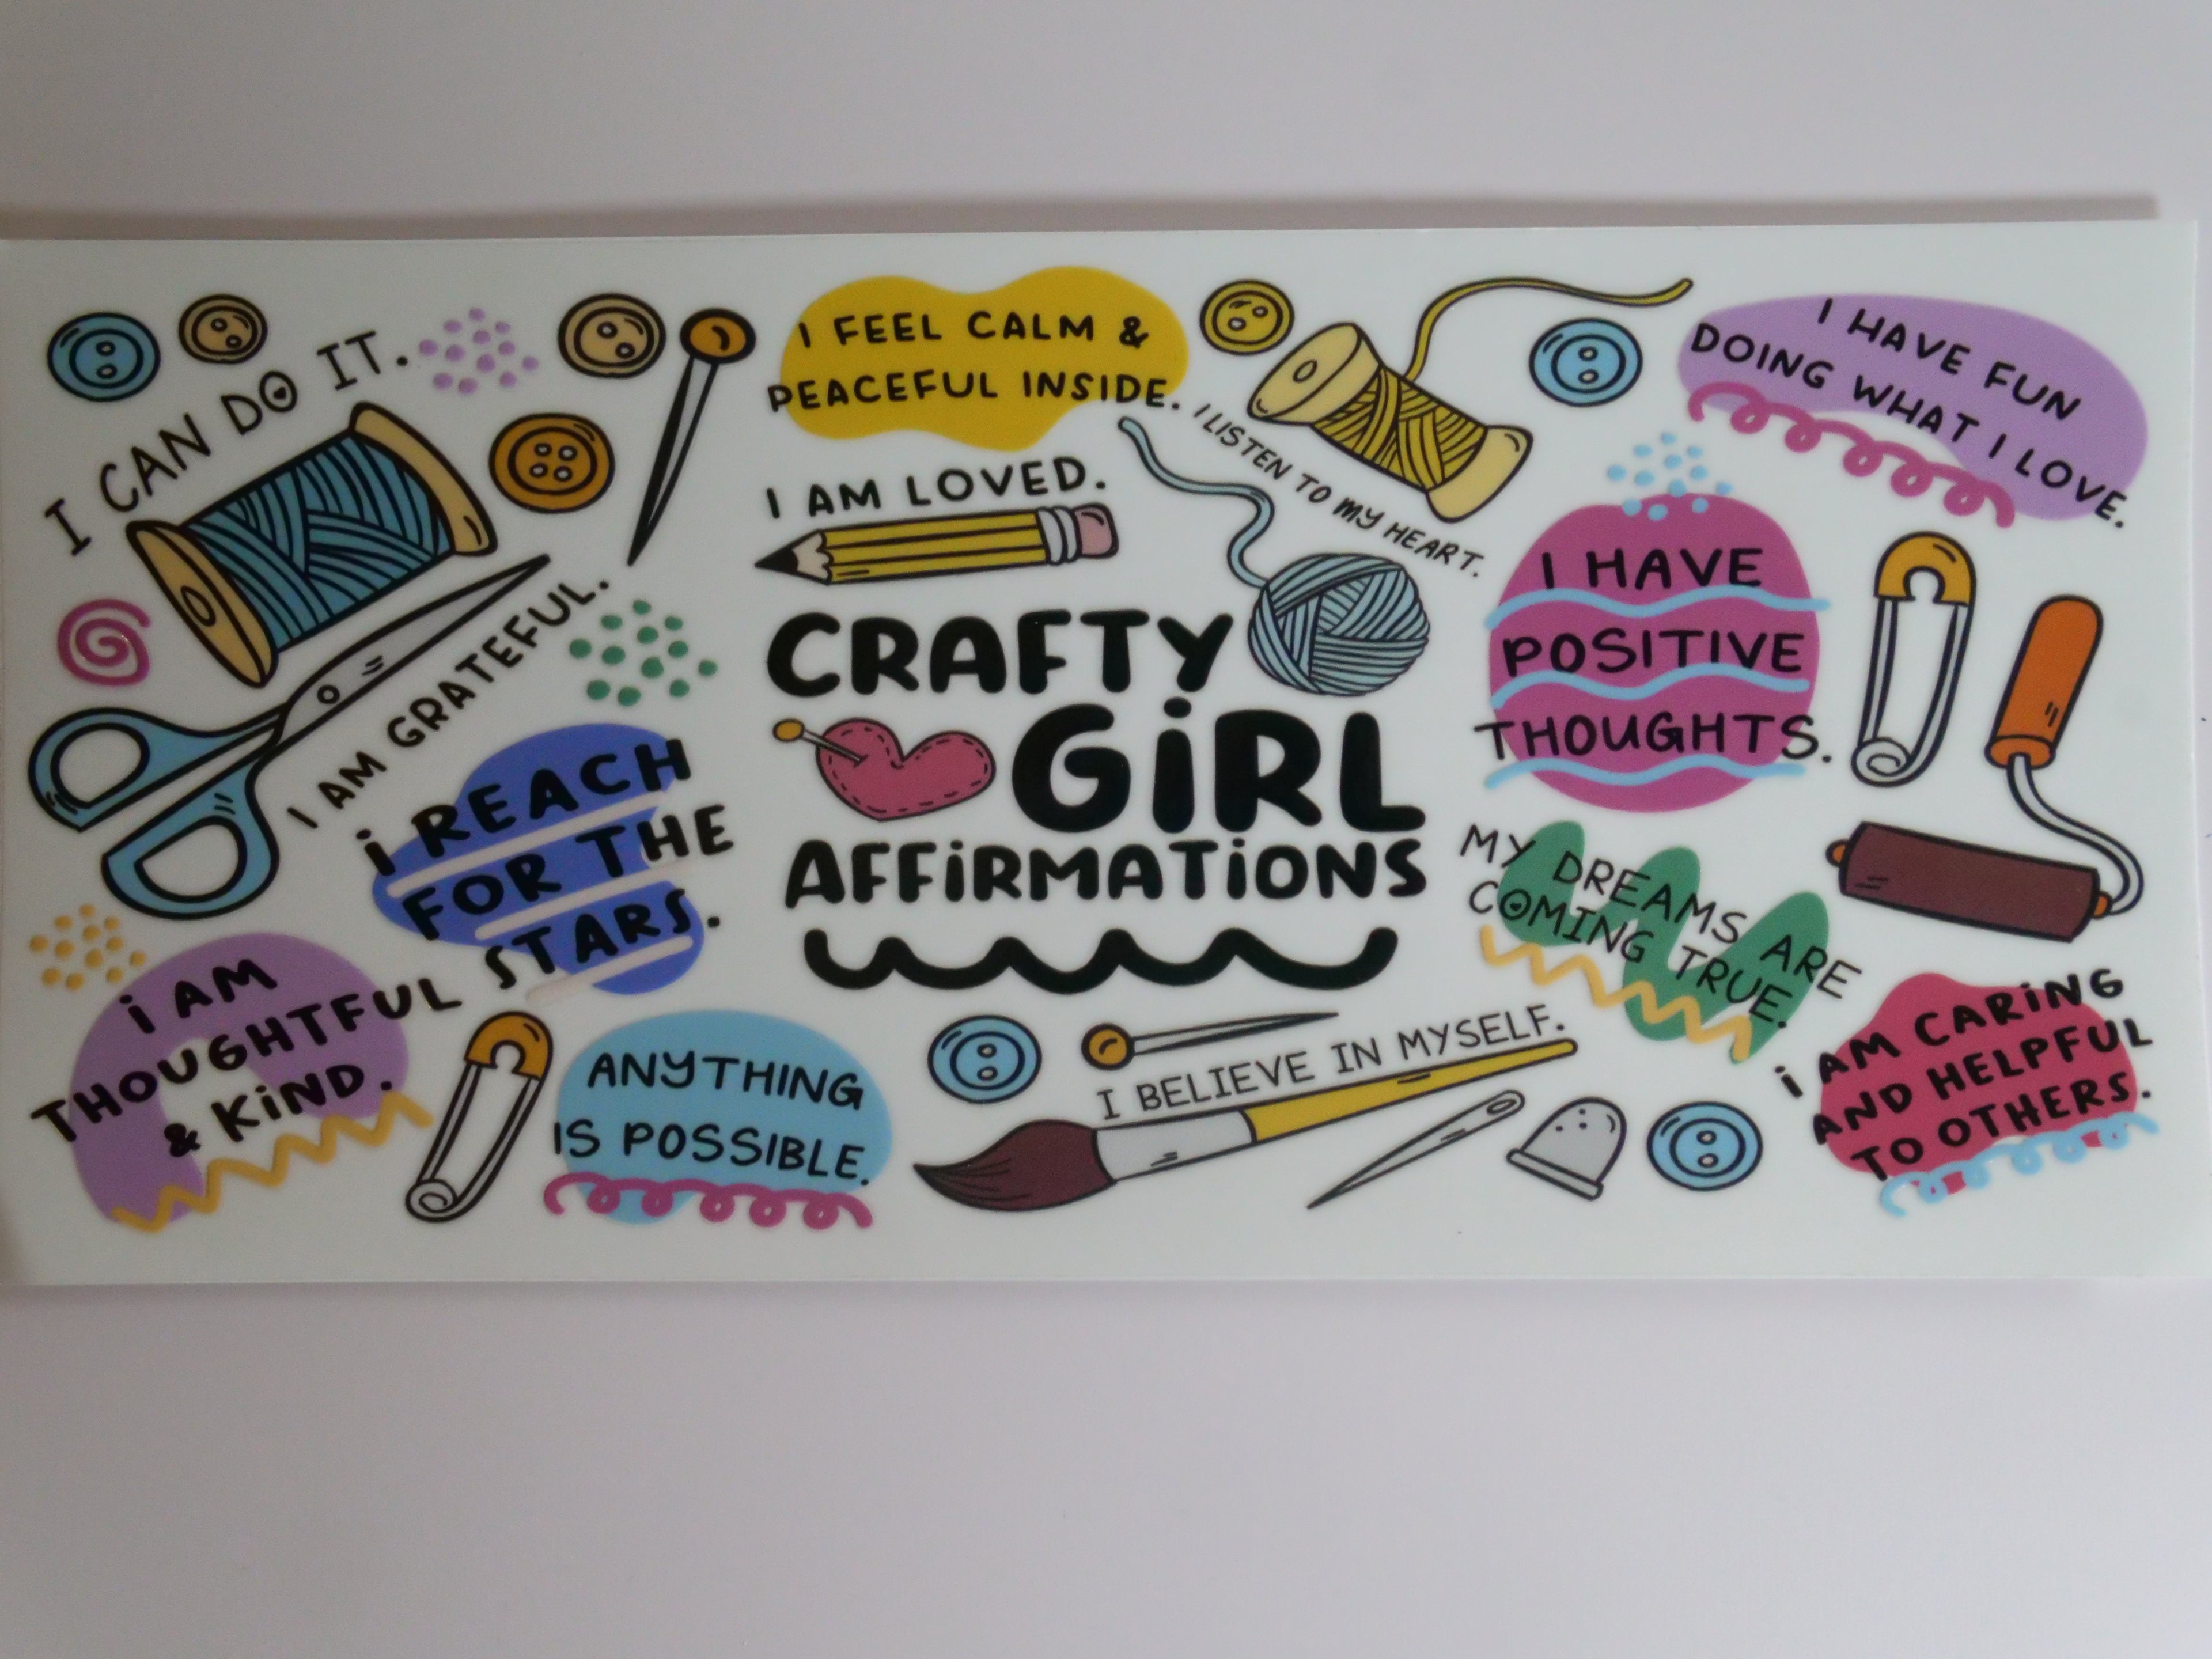 I CAN DO IT.
I AM GRATEFUL.
i REACH
FOR THE
STARS.
i AM
THOUGHTFUL
& KiND.
ANYTHING
IS POSSIBLE.
I FEEL CALM &
PEACEFUL INSIDE.
I AM LOVED.
I LISTEN TO MY HEART.
CRAFTY
GiRL
AFFiRMATiONS
I BELIEVE IN MYSELF.
I HAVE FUN
DOING WHAT I LOVE.
I HAVE
POSITIVE
THOUGHTS.
MY DREAMS ARE
COMING TRUE.
i AM CARiNG
AND HELPFUL
TO OTHERS.